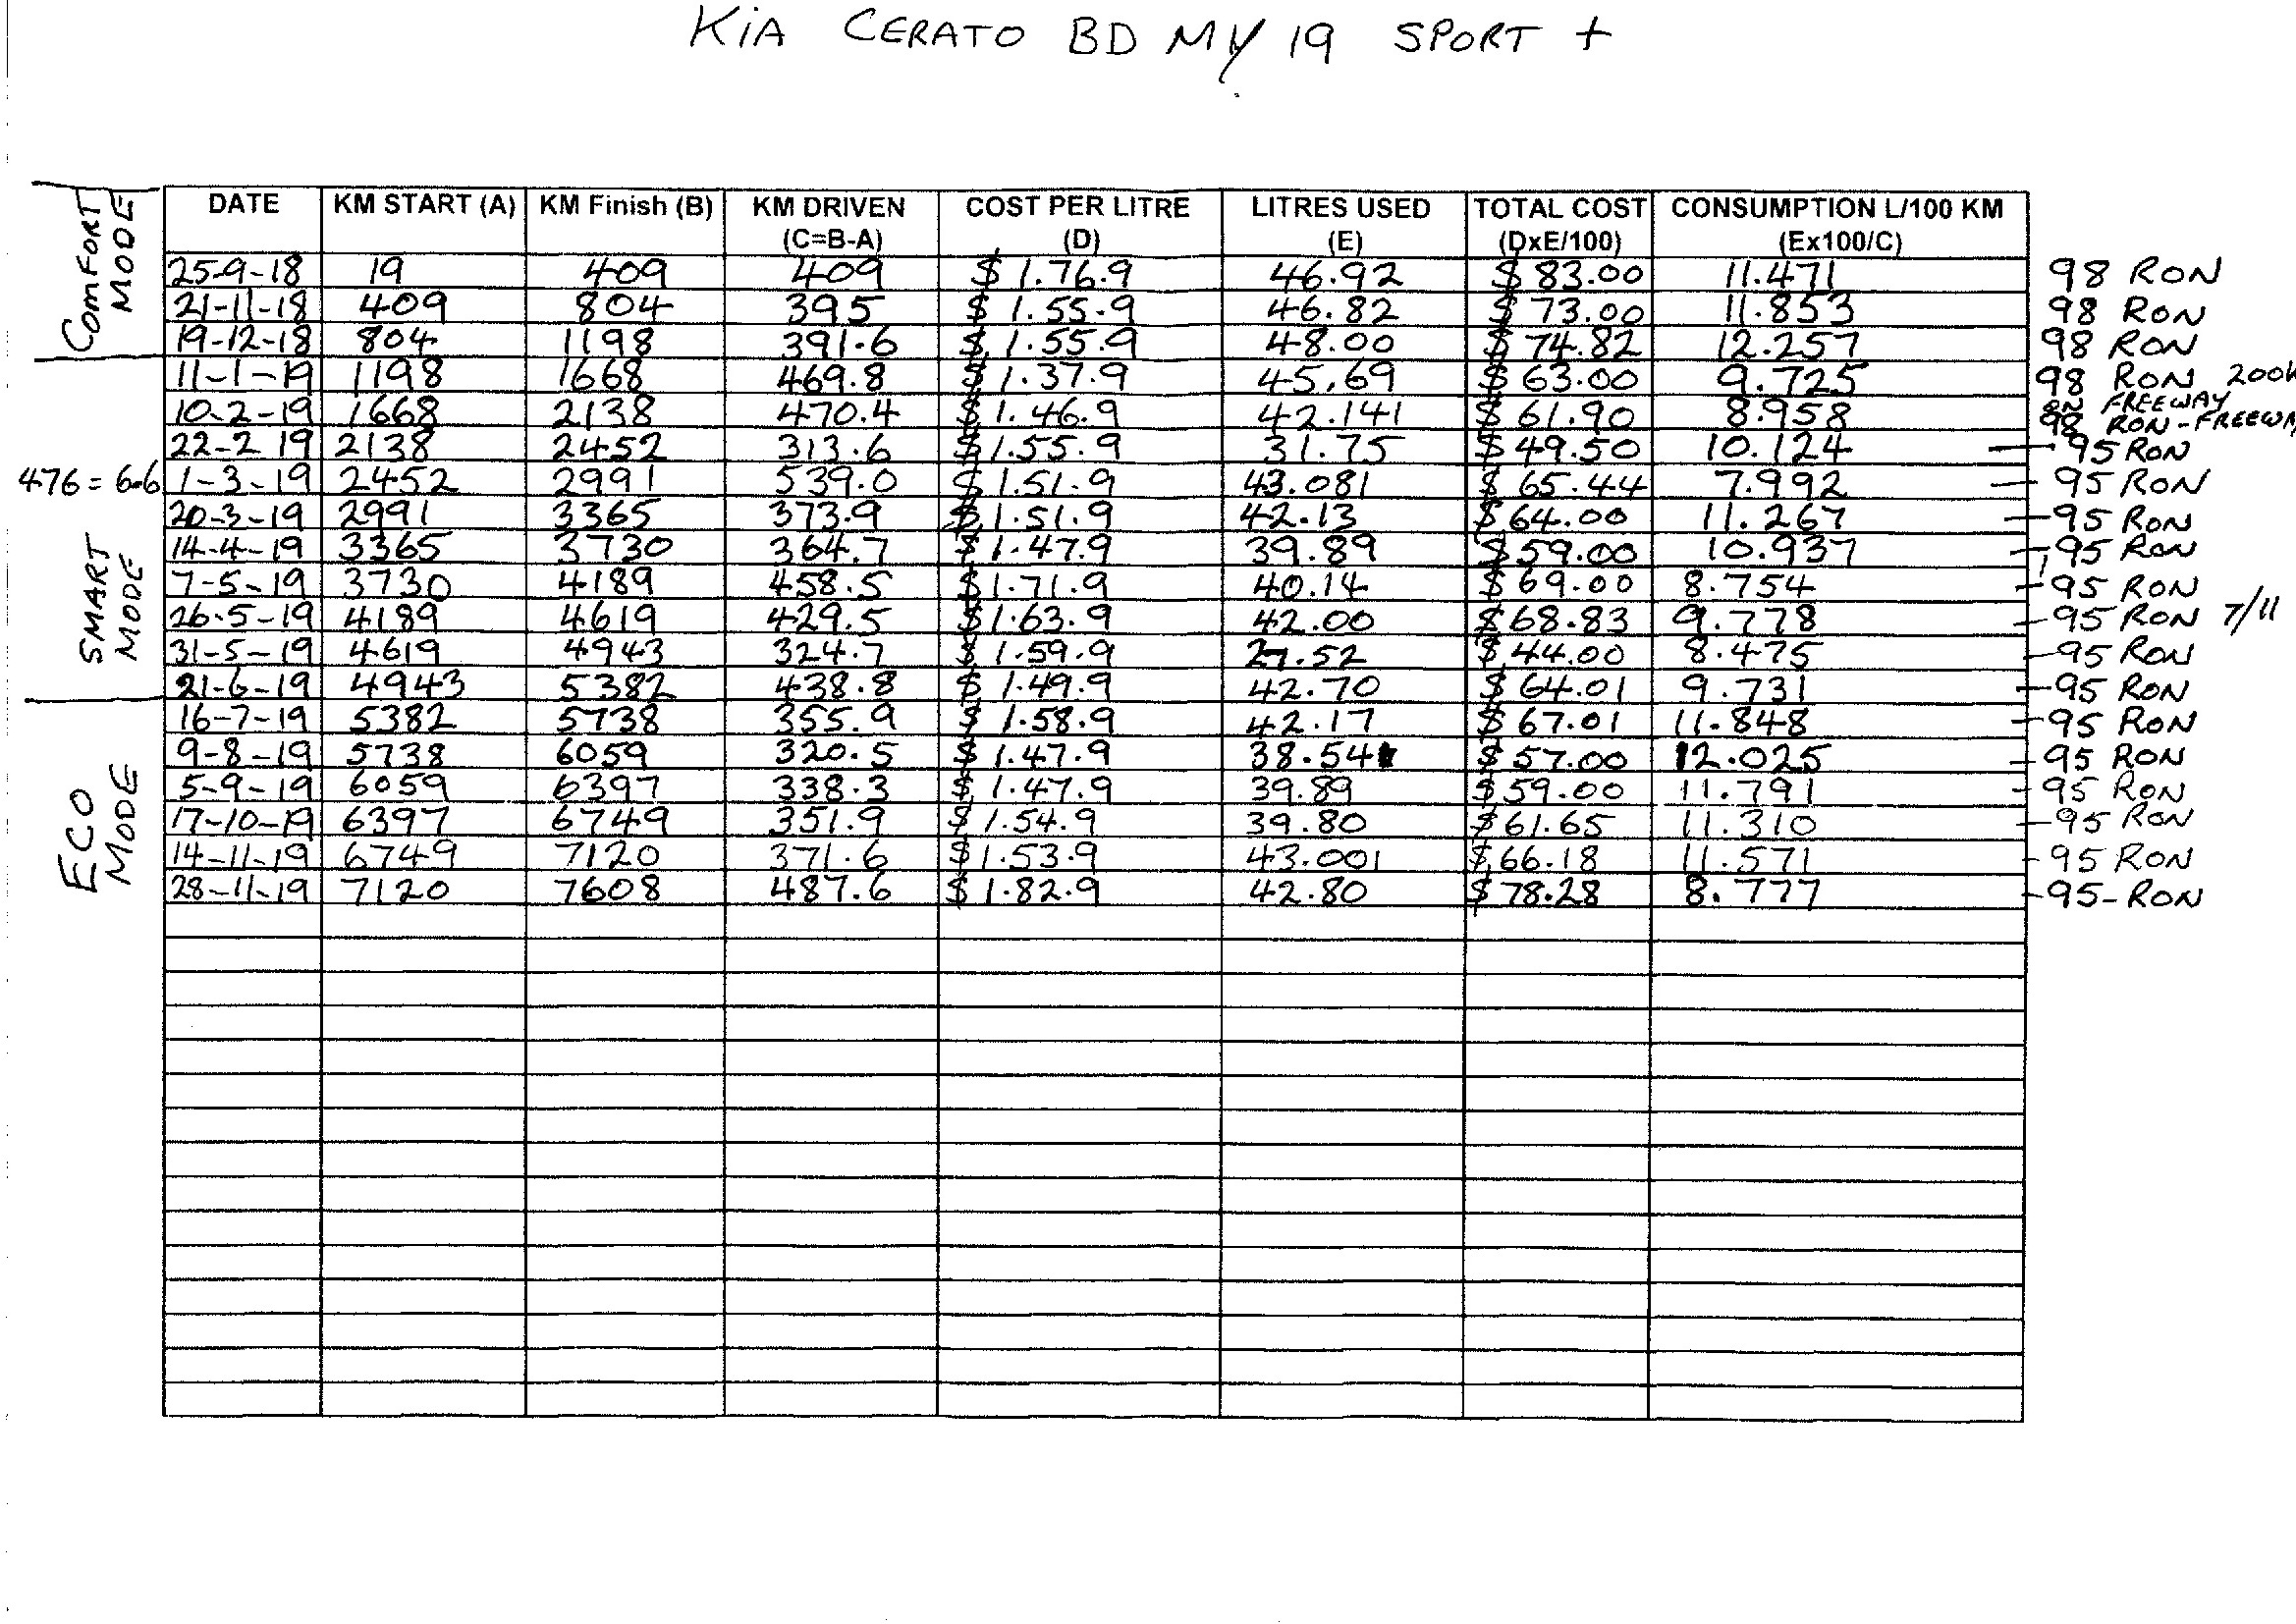 KiA CERATO BD MY 19 SPORT +
COMFORT MODE
DATE KM START (A) KM Finish (B) KM DRIVEN (C=B-A) COST PER LITRE (D) LITRES USED (E) TOTAL COST (DxE/100) CONSUMPTION L/100 KM (Ex100/C)
25-9-18 19 409 409 $ 1.76.9 46.92 $ 83.00 11.471 98 RON
21-11-18 409 804 395 $ 1.55.9 46.82 $ 73.00 11.853 98 RON
19-12-18 804 1198 391.6 $ 1.55.9 48.00 $ 74.82 12.257 98 RON
SMART MODE
11-1-19 1198 1668 469.8 $ 1.37.9 45.69 $ 63.00 9.725 98 RON 200K
ON FREEWAY
10-2-19 1668 2138 470.4 $1.46.9 42.141 $ 61.90 8.958 98 RON-FREEWAY
22-2 19 2138 2452 313.6 $1.55.9 31.75 $49.50 10.124 95 RON
476 = 6.6 1-3-19 2452 2991 539.0 $ 1.51.9 43.081 $ 65.44 7.992 95 RON
20-3-19 2991 3365 373.9 $1.51.9 42.13 $64.00 11.267 95 RON
14-4-19 3365 3730 364.7 $1.47.9 39.89 $59.00 10.937 95 RON
7-5-19 3730 4189 458.5 $1.71.9 40.14 $ 69.00 8.754 95 RON
26.5-19 4189 4619 429.5 $1.63.9 42.00 $68.83 9.778 95 RON 7/11
31-5-19 4619 4943 324.7 $ 1.59.9 27.52 $ 44.00 8.475 95 RON
21-6-19 4943 5382 438.8 $ 1.49.9 42.70 $ 64.01 9.731 95 RON
ECO MODE
16-7-19 5382 5738 355.9 $ 1.58.9 42.17 $ 67.01 11.848 95 RON
9-8-19 5738 6059 320.5 $ 1.47.9 38.54 $ 57.00 12.025 95 RON
5-9-19 6059 6397 338.3 $ 1.47.9 39.89 $59.00 11.791 95 RON
17-10-19 6397 6749 351.9 $ 1.54.9 39.80 $61.65 11.310 95 RON
14-11-19 6749 7120 371.6 $1.53.9 43.001 $66.18 11.571 95 RON
28-11-19 7120 7608 487.6 $ 1.82.9 42.80 $78.28 8.777 95-RON